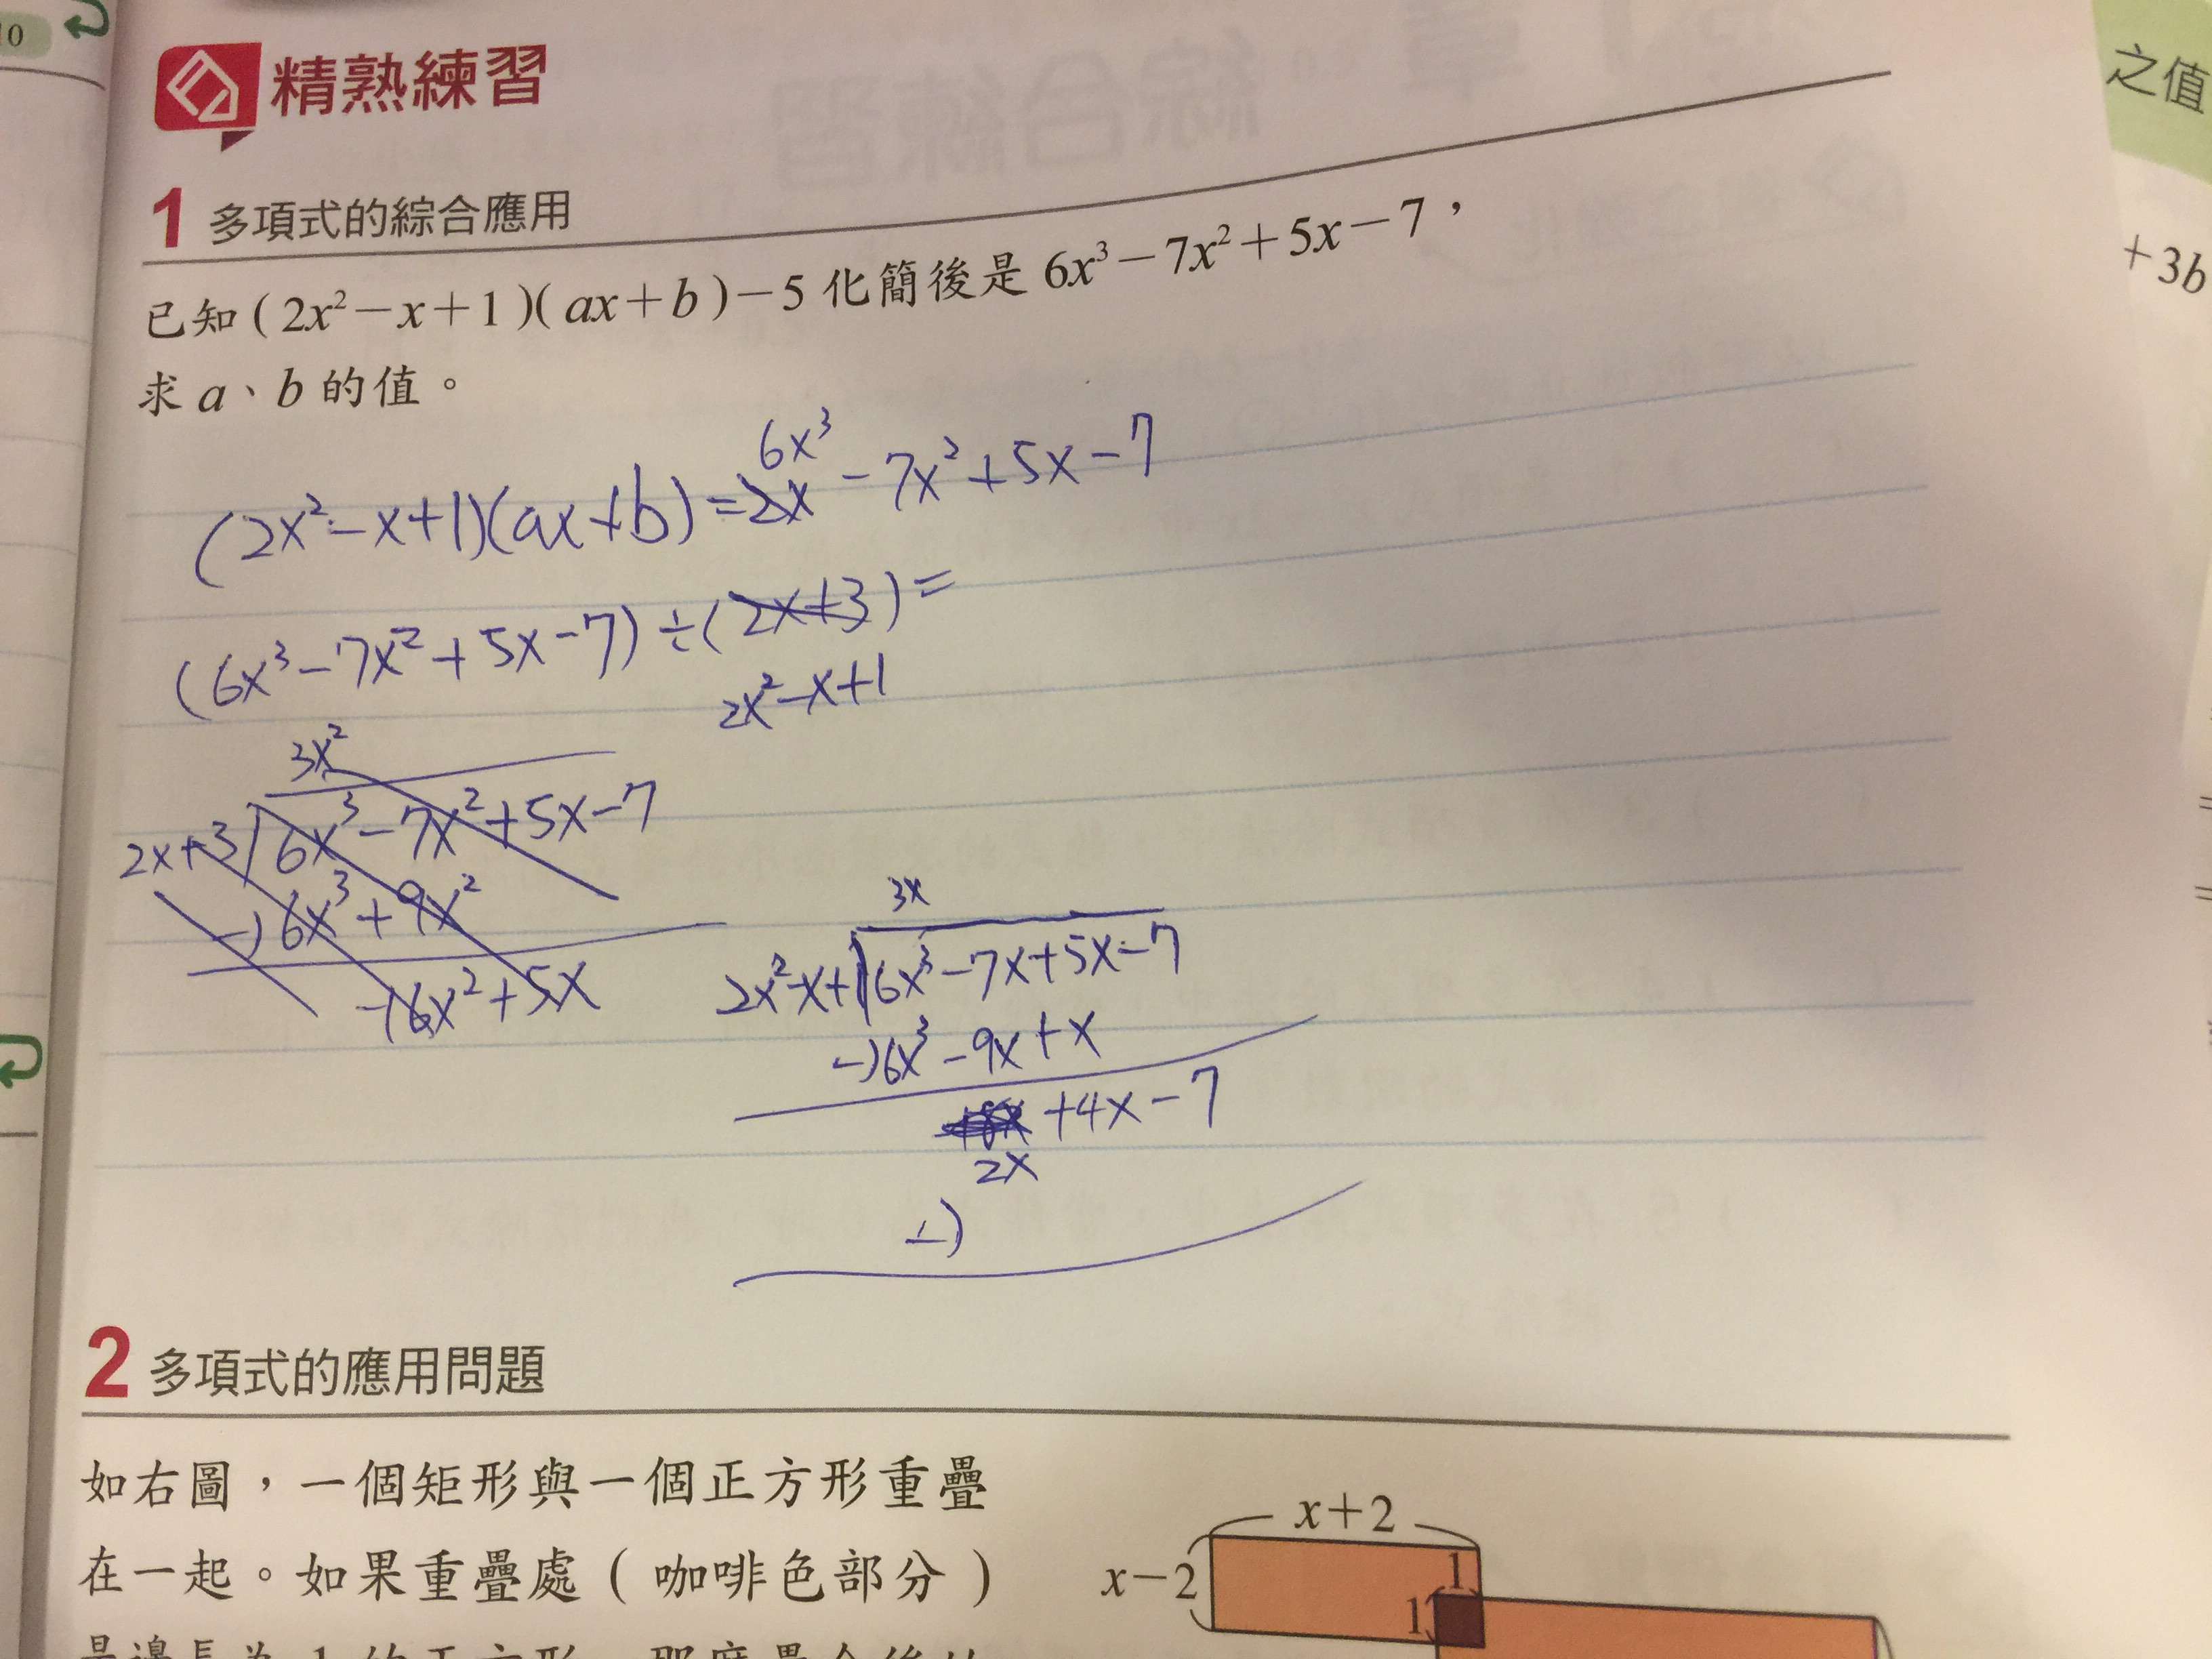 10
之值
精熟練習
1 多項式的綜合應用
已知（2x²－x＋1）（ax＋b）－5 化簡後是 6x³－7x²＋5x－7，
＋3b
求 a、b 的值。
6x³
(2x²-x+1)(ax+b)=2x-7x²+5x-7
(6x³-7x²+5x-7)÷(2x+3)=
2x²-x+1
3x²
2x+3 6x³-7x²+5x-7
-)6x³+9x²
-16x²+5x
3x
2x²-x+1 6x³-7x+5x-7
-)6x³-9x+x
+4x-7
2x
-)
2 多項式的應用問題
如右圖，一個矩形與一個正方形重疊
在一起。如果重疊處（咖啡色部分）
x＋2
x－2
1
1